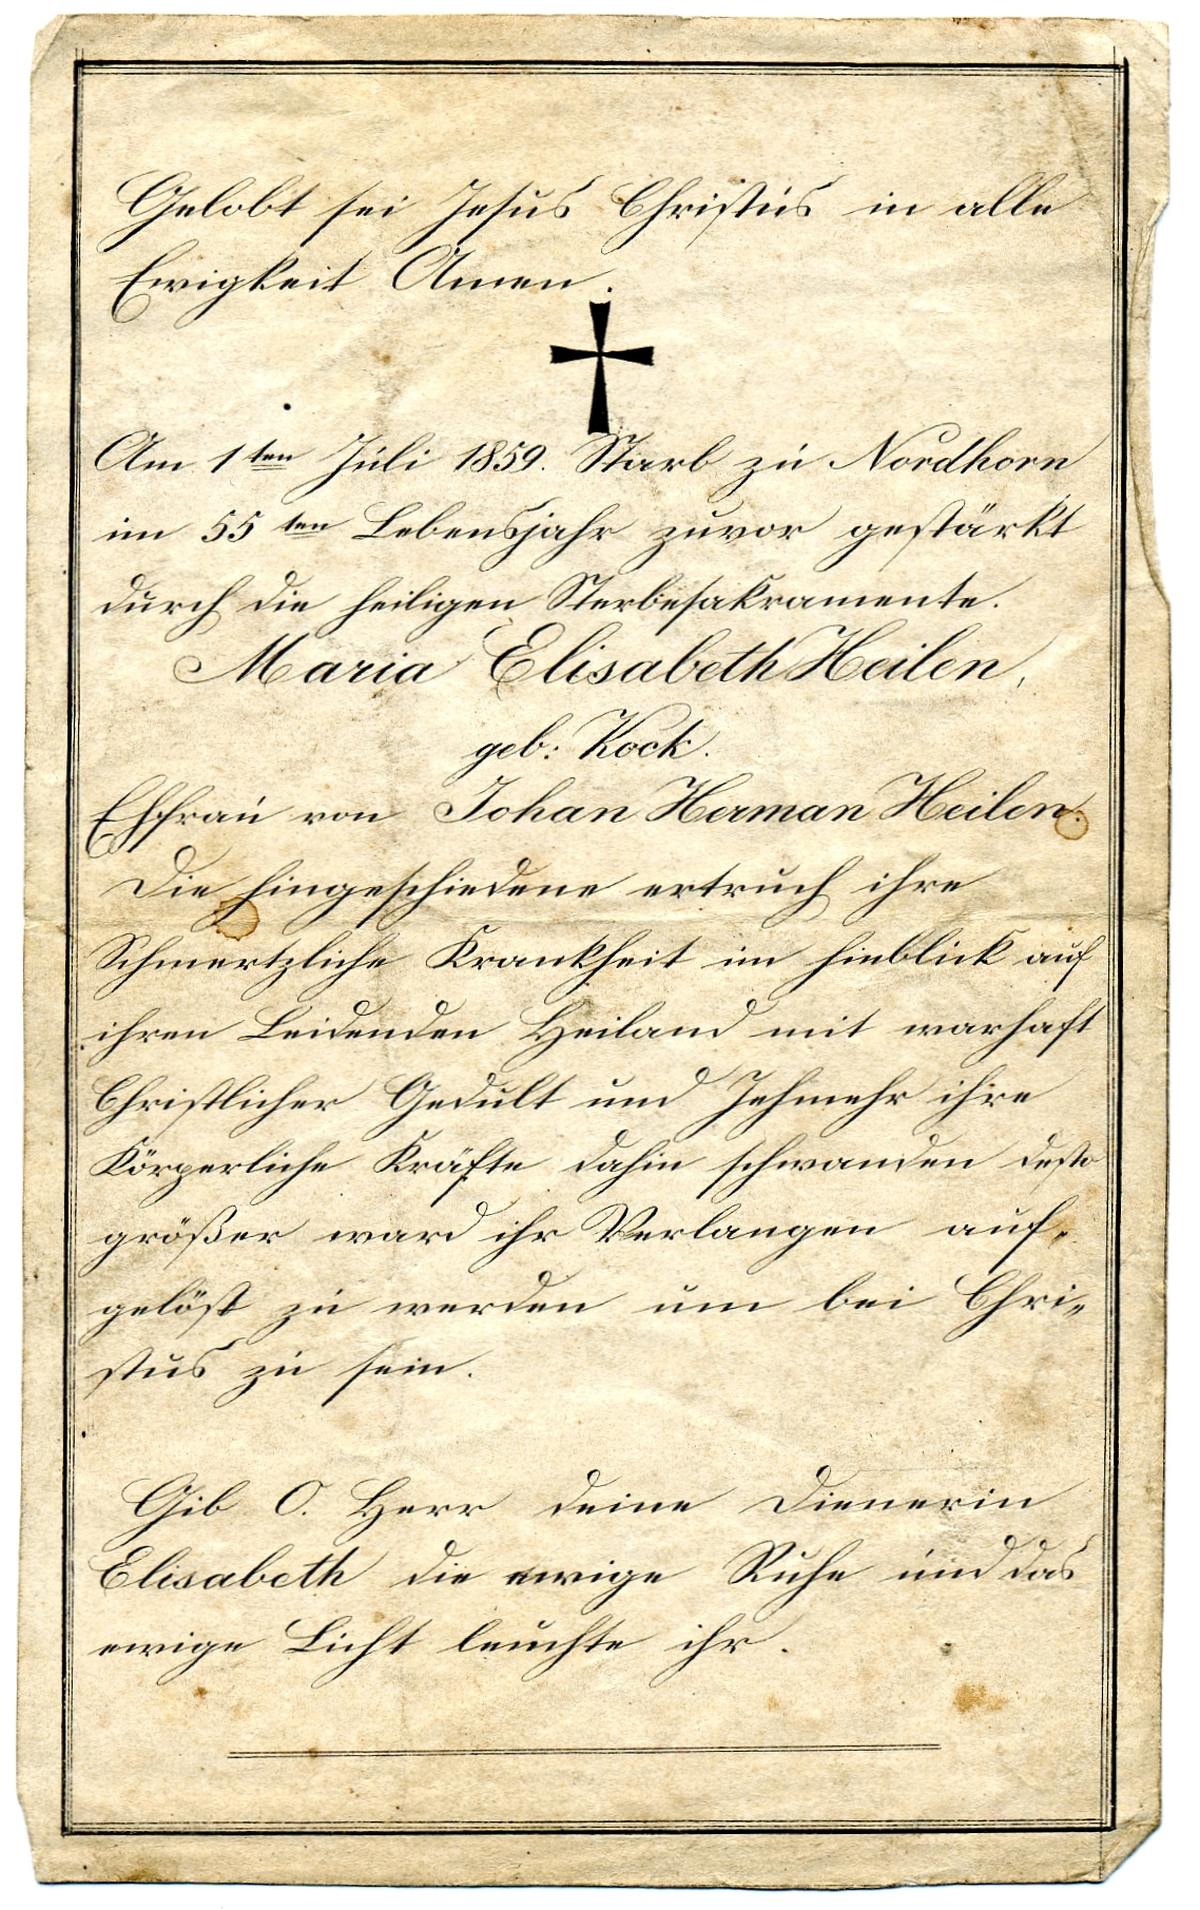 Gelobt sei Jesus Christus in alle
Ewigkeit Amen.
Am 1ten Juli 1859. Starb zu Nordhorn
im 55ten Lebensjahr zuvor gestärkt
durch die heiligen Sterbesakramente.
Maria Elisabeth Heilen,
geb: Kock.
Ehfrau von Johan Herman Heilen.
Die hingeschiedene ertruch ihre
Schmertzliche Krankheit im hinblick auf
ihren Leidenden Heiland mit warhaft
Christlicher Gedult und Jehmehr ihre
Körperliche Kräfte dahin schwanden desto
größer ward ihr Verlangen auf-
gelöst zu werden um bei Chri-
stus zu sein.
Gib O. Herr deine Dienerin
Elisabeth die ewige Ruhe und das
ewige Licht leuchte ihr.